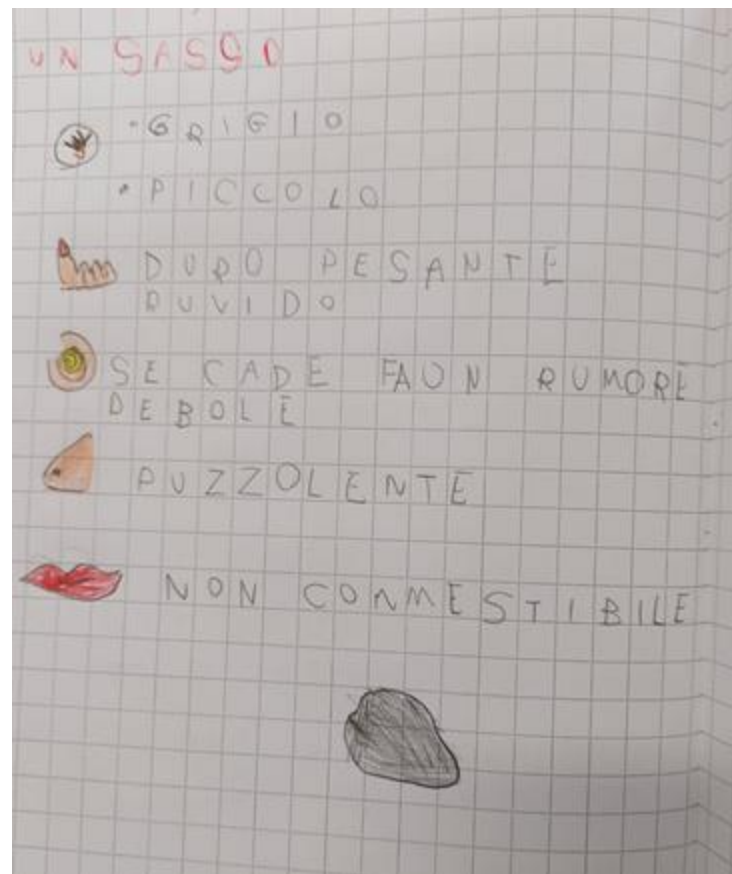 UN SASSO
• GRIGIO
• PICCOLO
DURO PESANTE
RUVIDO
SE CADE FA UN RUMORE
DEBOLE
PUZZOLENTE
NON CONMESTIBILE